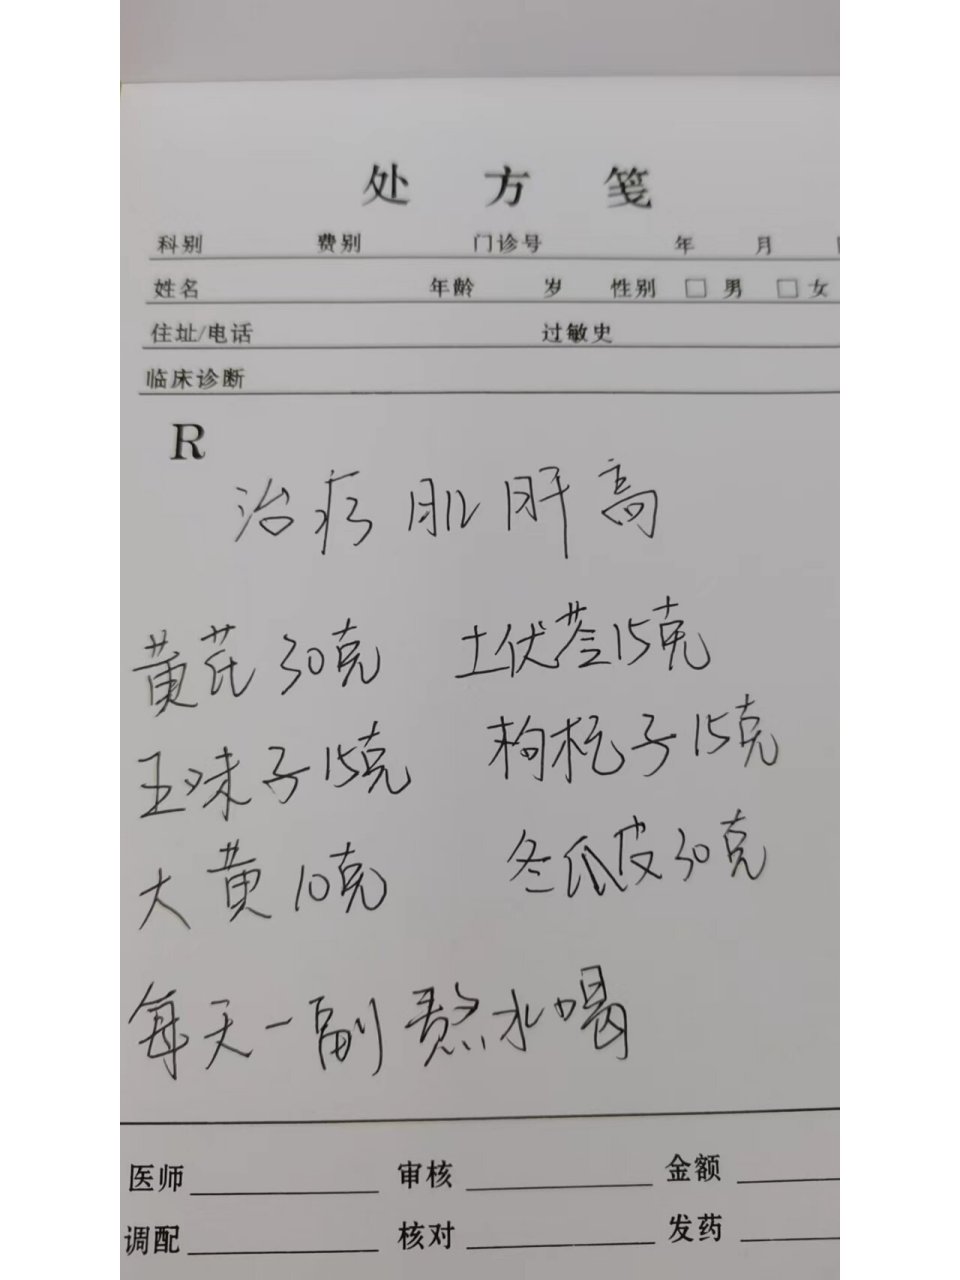 处方笺
科别 费别 门诊号 年 月
姓名 年龄 岁 性别 □男 □女
住址/电话 过敏史
临床诊断
R
治疗肌肝高
黄芪30克 土伏苓15克
五味子15克 枸杞子15克
大黄10克 冬瓜皮30克
每天一副熬水喝
医师 审核 金额
调配 核对 发药